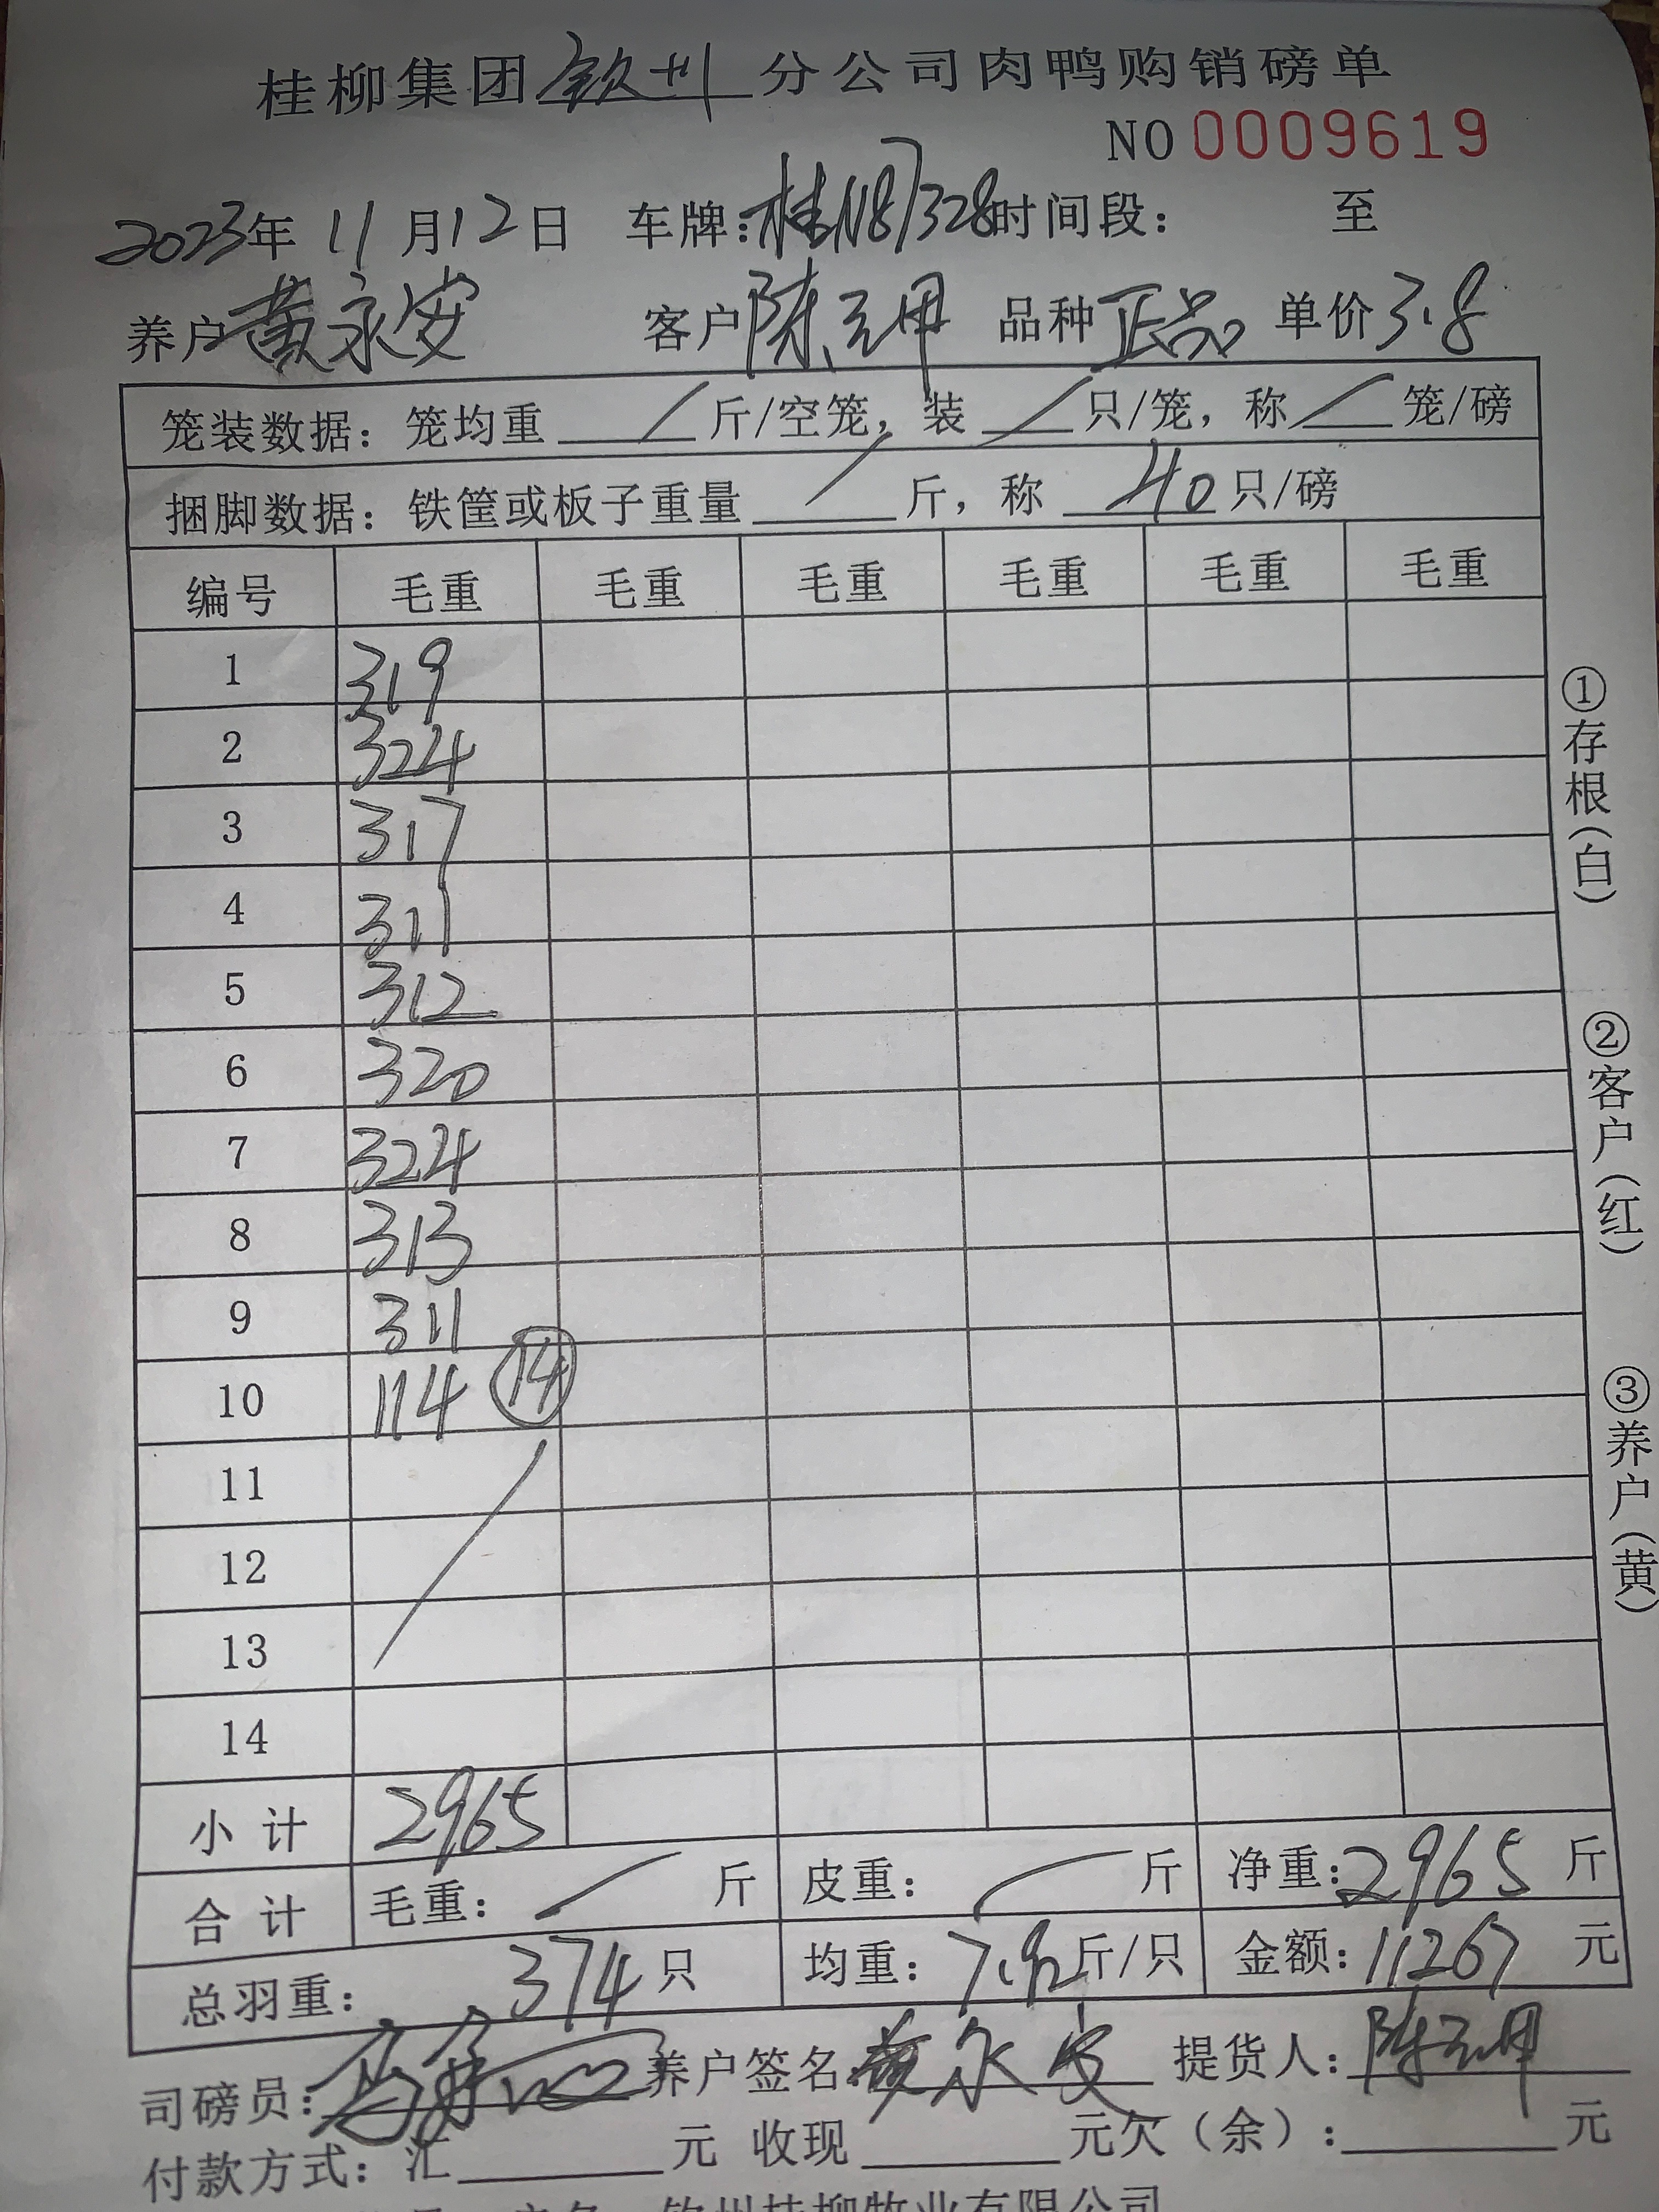 桂柳集团钦州分公司肉鸭购销磅单
NO 0009619
2023年 11月12日 车牌:桂N87328时间段: 至
养户黄永安 客户陈 品种正品 单价3.8
笼装数据:笼均重 / 斤/空笼,装 / 只/笼,称 / 笼/磅
捆脚数据:铁筐或板子重量 / 斤,称 40只/磅
编号 毛重 毛重 毛重 毛重 毛重 毛重
1 319
2 324
3 317
4 311
5 312
6 320
7 324
8 313
9 311
10 114 ⑭
11
12
13
14
小计 2965
合计 毛重: / 斤 皮重: / 斤 净重:2965斤
总羽重: 374只 均重:7.92斤/只 金额:11267元
司磅员: 养户签名:黄永安 提货人:陈
付款方式:汇 元 收现 元欠(余): 元
钦州桂柳牧业有限公司
①存根(白)
②客户(红)
③养户(黄)